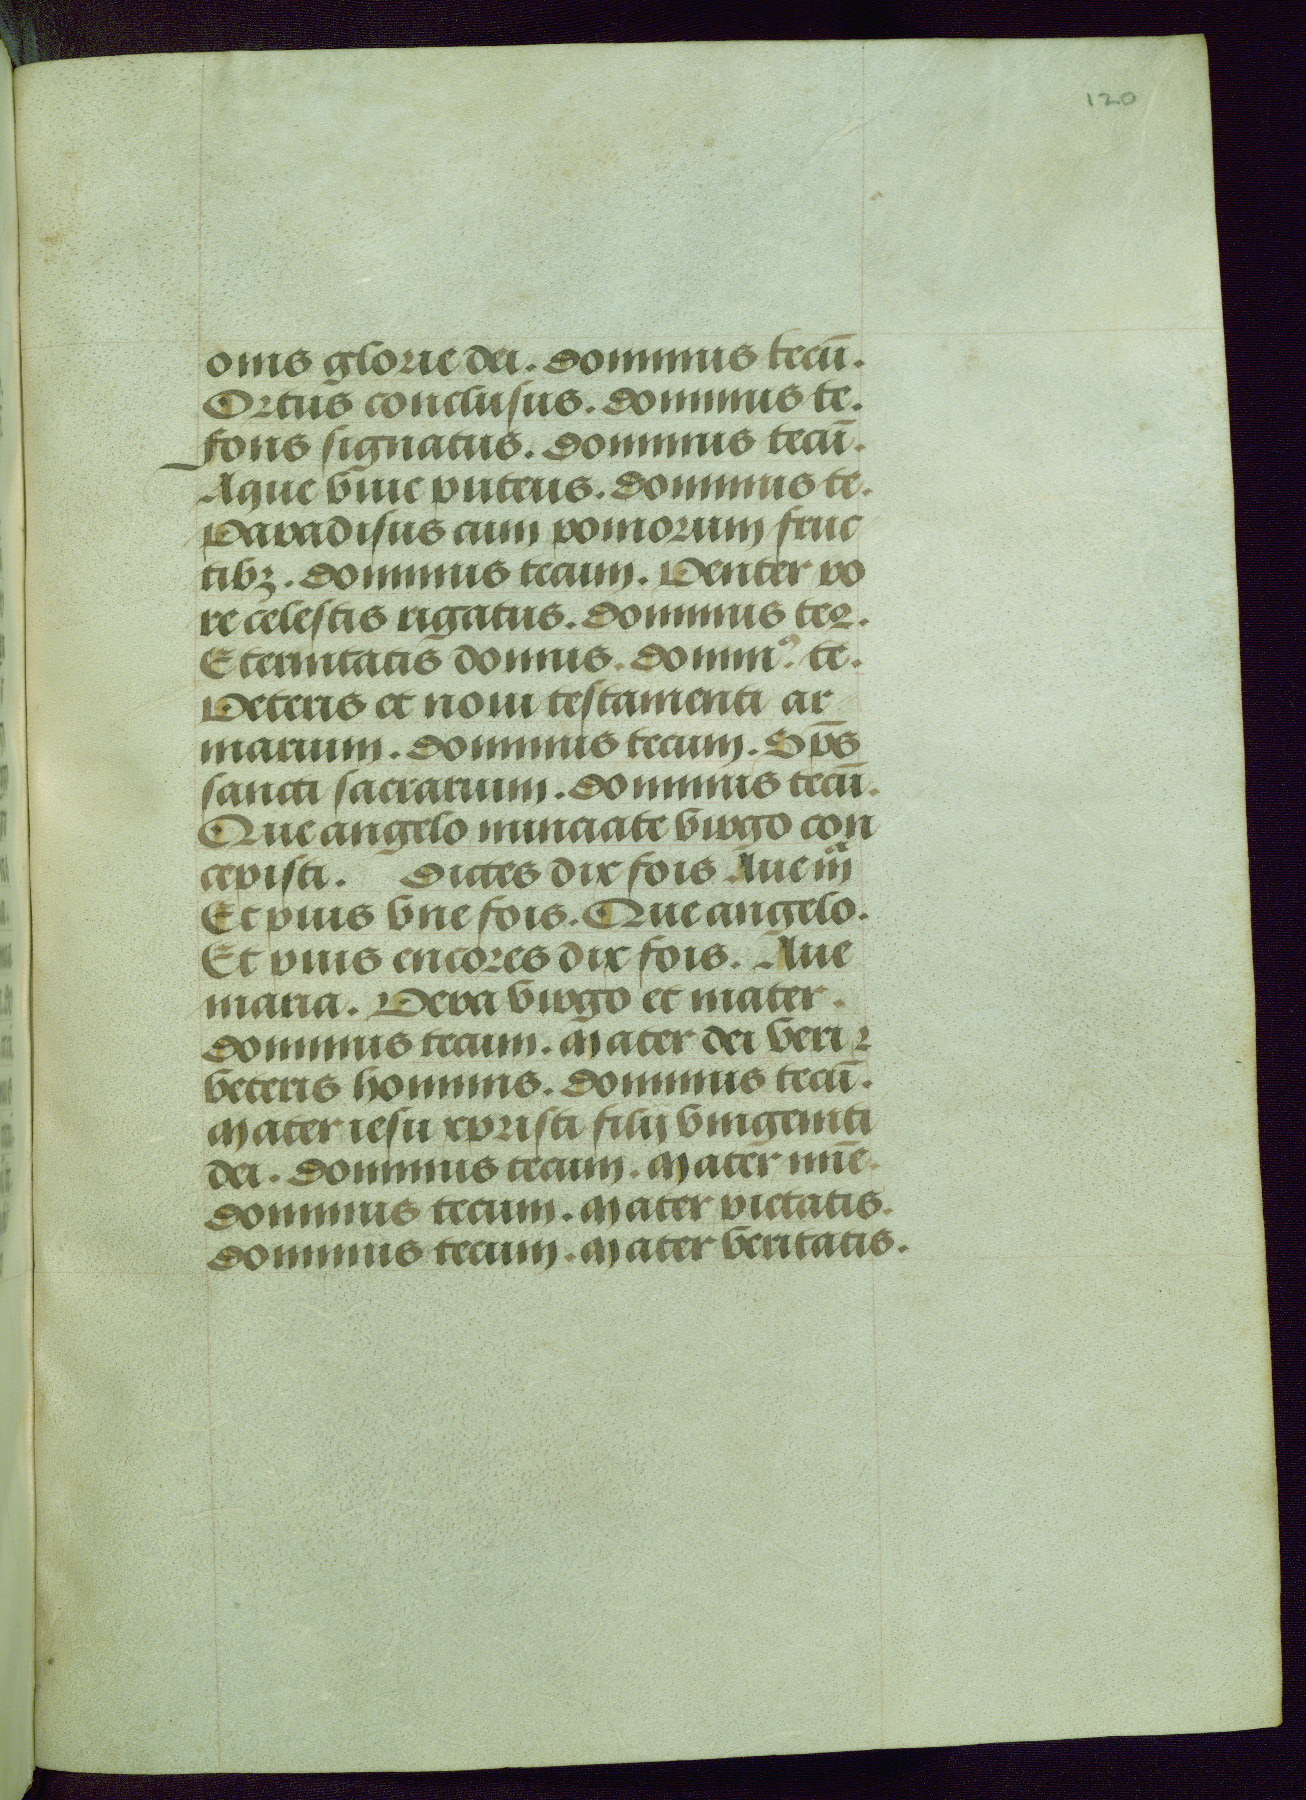 120
onis glorie dei. Dominus tecū.
Ortus conclusus. Dominus te.
fons signatus. Dominus tecū.
Aque viue puteus. Dominus te.
Paradisus cum pomorum fruc
tibꝫ. Dominus tecum. Venter ro
re celestis rigatus. Dominus tec.
Eternitatis domus. Dominꝰ. te.
Veteris et noui testamenti ar
marium. Dominus tecum. Sp̄s
sancti sacrarium. Dominus tecū.
Que angelo nunciate virgo con
cepisti. Dictes dix fois Aue m̄
Et puis vne fois. Que angelo.
Et puis encores dix fois. Aue
maria. Vera virgo et mater.
Dominus tecum. Mater dei veri ⁊
veteris hominis. Dominus tecū.
Mater iesu xpristi filij vnigeniti
dei. Dominus tecum. Mater mīe.
Dominus tecum. Mater pietatis.
Dominus tecum. Mater veritatis.